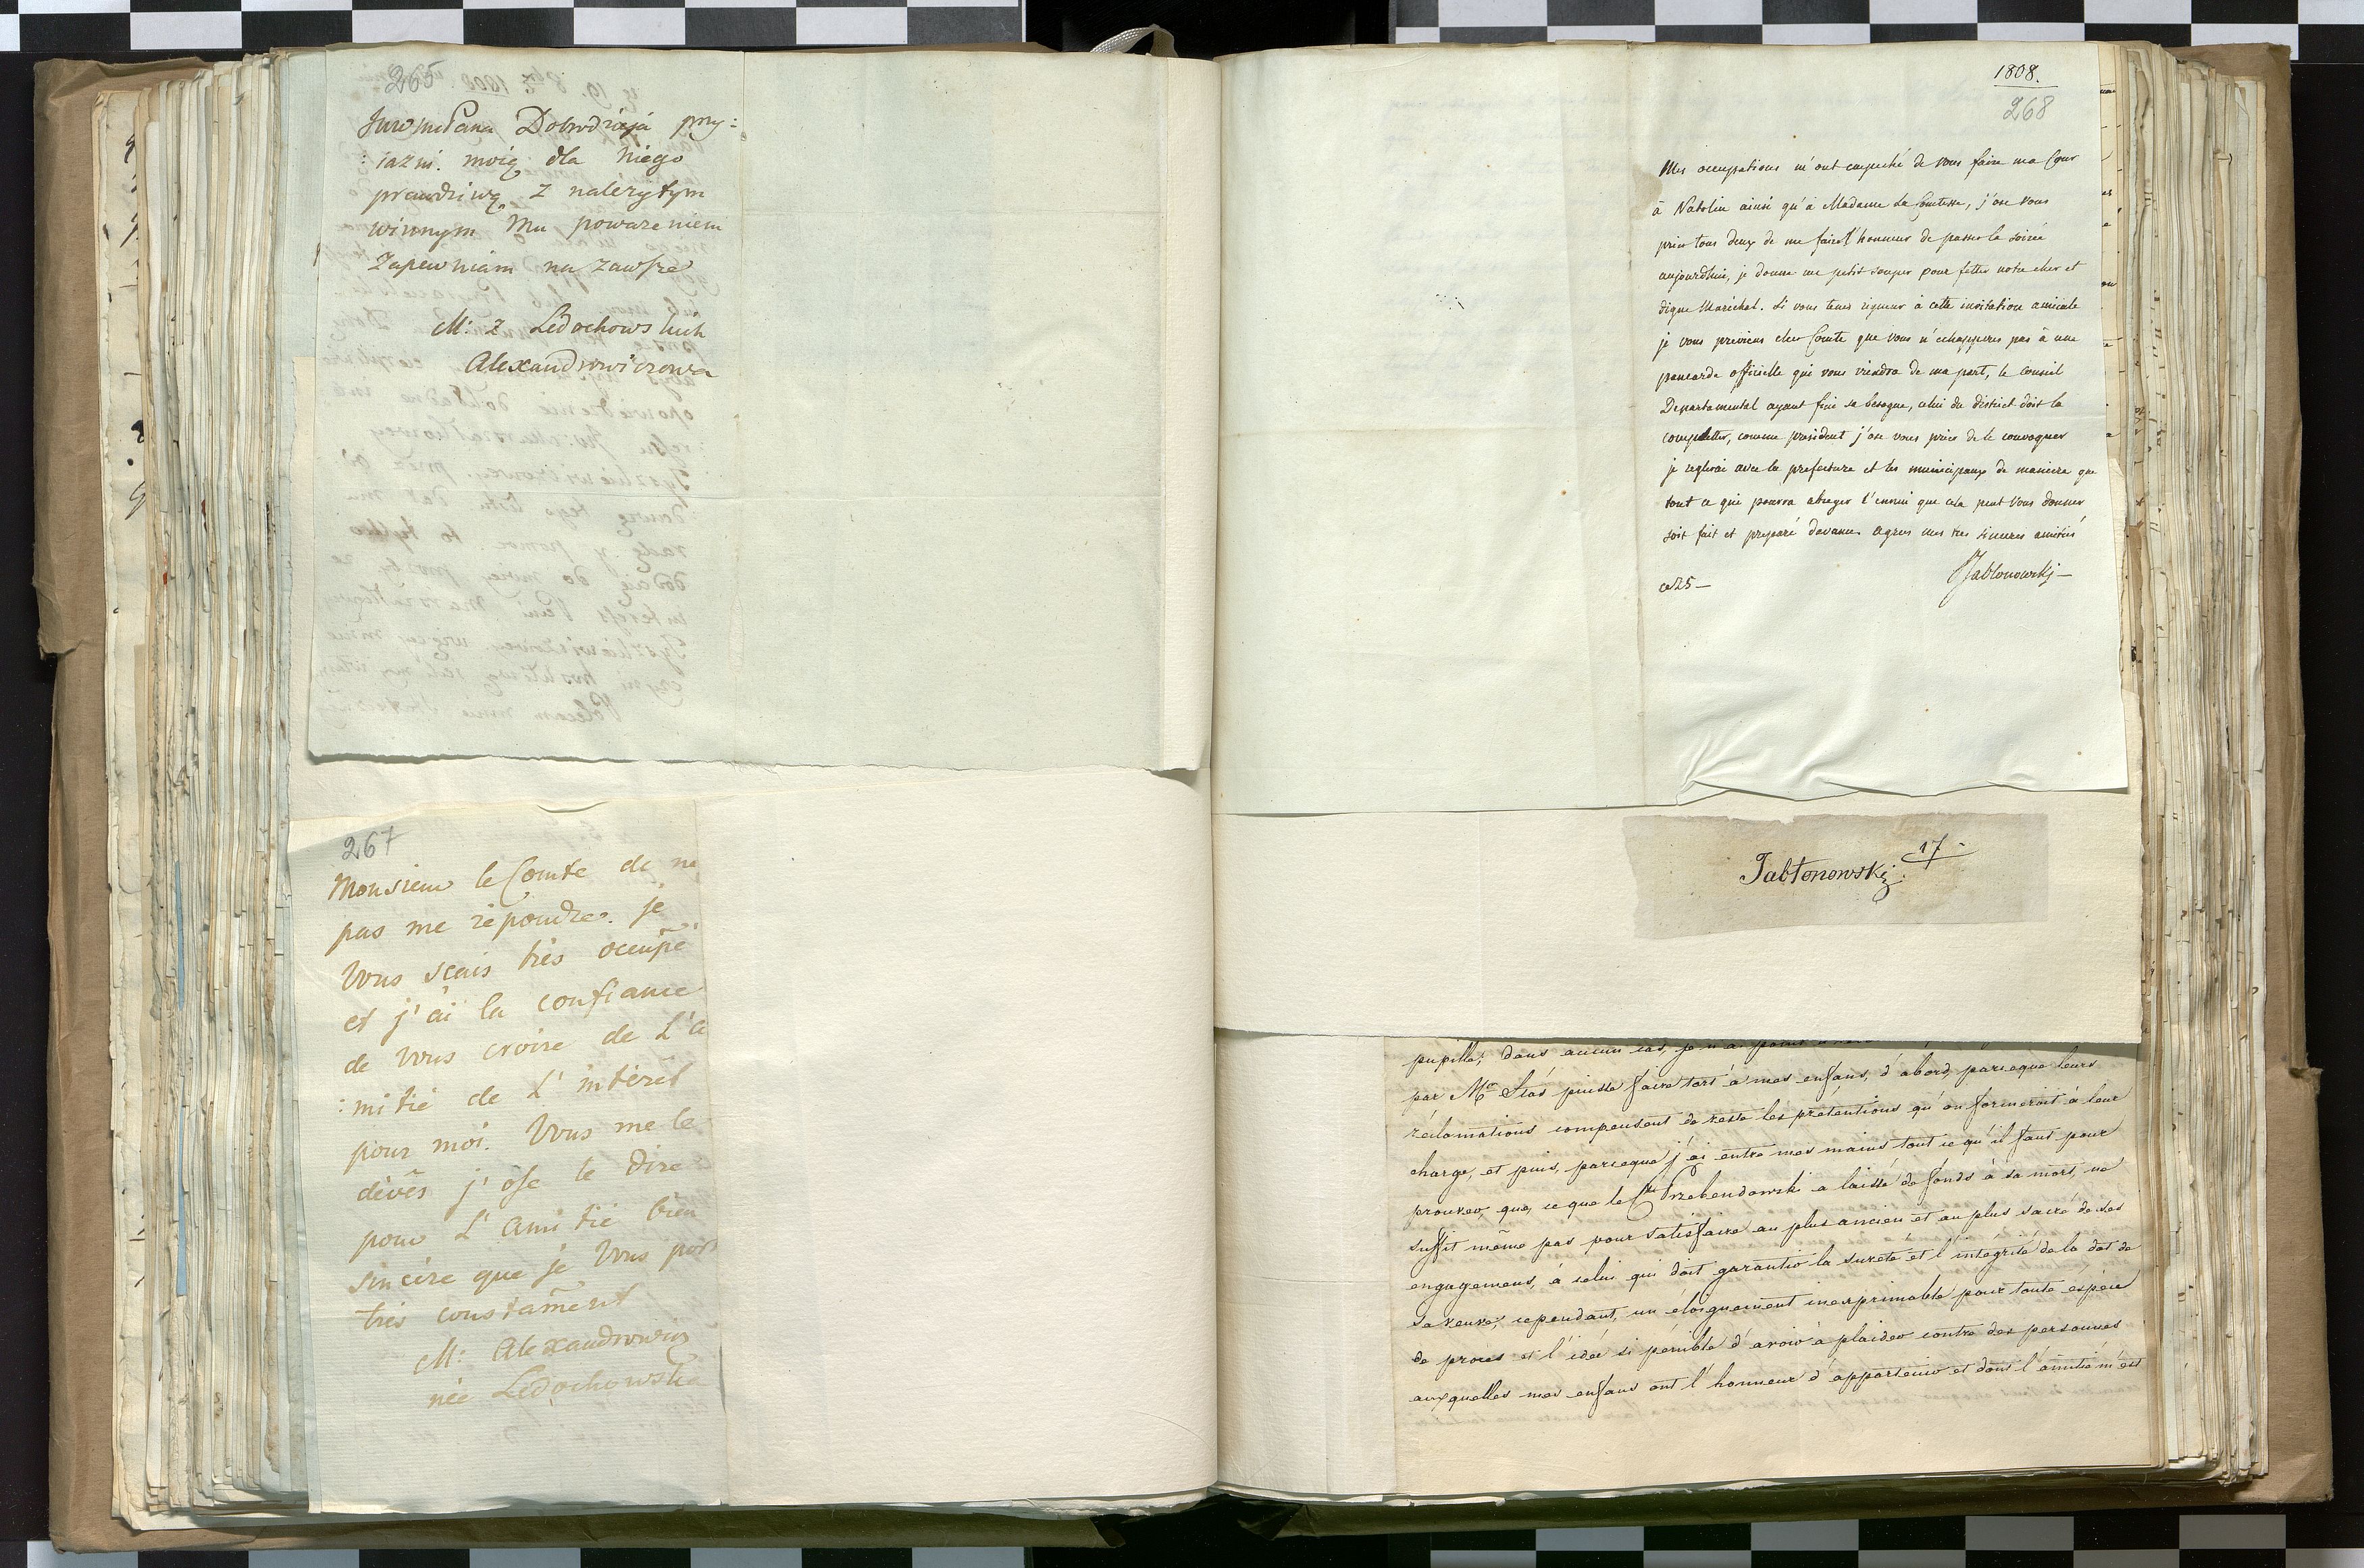 265
JWo JmćPana Dobrodzieja przy:
:iazni. moię dla niego
prawdziwą z nalézytym
winnym Mu poważeniem
Zapewniam na zawsze
M: z Ledochowskich
Alexandrowiczowa
267
Monsieur le Comte de ne
pas me répondre. je
Vous sçais très occupé
et j'ai la confiance
de Vous croire de L'a
:mitié de L'intérêt
pour moi. Vous me le
devés j'ose le Dire
pour L'Amitié bien
sincère que je Vous port
très constament
M: Alexandrowicz
née Ledochowska
1808.
268
Mes occupations m'ont empeché de vous faire ma Cour
à Natolin ainsi qu'à Madame La Comtesse, j'ose vous
prier tous deux de me faire l'honneur de passer la soirée
aujourdhui, je donne un petit souper pour fetter notre cher et
digne Maréchal. Si vous tenes rigueur à cette invitation amicale
je vous previens cher Comte que vous n'echapperes pas à une
pancarde officielle qui vous viendra de ma part, le Conseil
Departamental ayant fini sa besogne, celui du district doit la
completter, comme president j'ose vous prier de le convoquer
je reglerai avec la prefecture et les municipaux de maniere que
tout ce qui pourra abreger l'ennui que cela peut vous donner
soit fait et preparé davance. agrees mes tres sinceres amitiés
ce 25 —
Jablonowski —
Jabłonowski. 17.
pupille; dans aucun cas, je n'ai point
par Mr. Stas puisse faire tort à mes enfans, d'abord, parceque leurs
réclamations compensent de reste les prétentions qu'on formeroit à leur
charge, et puis, parceque j'ai entre mes mains tout ce qu'il faut pour
prouver, que, ce que le Cte Przebendowski a laissé de fonds à sa mort, ne
suffit même pas pour satisfaire au plus ancien et au plus sacré de ses
engagemens, à celui qui doit garantir la sureté et l'intégrité de la dot de
sa veuve; cependant, un éloignement inexprimable pour toute espèce
de procès et l'idée si pénible d'avoir à plaider contre des personnes
auxquelles mes enfans ont l'honneur d'appartenir et dont l'amitié m'est